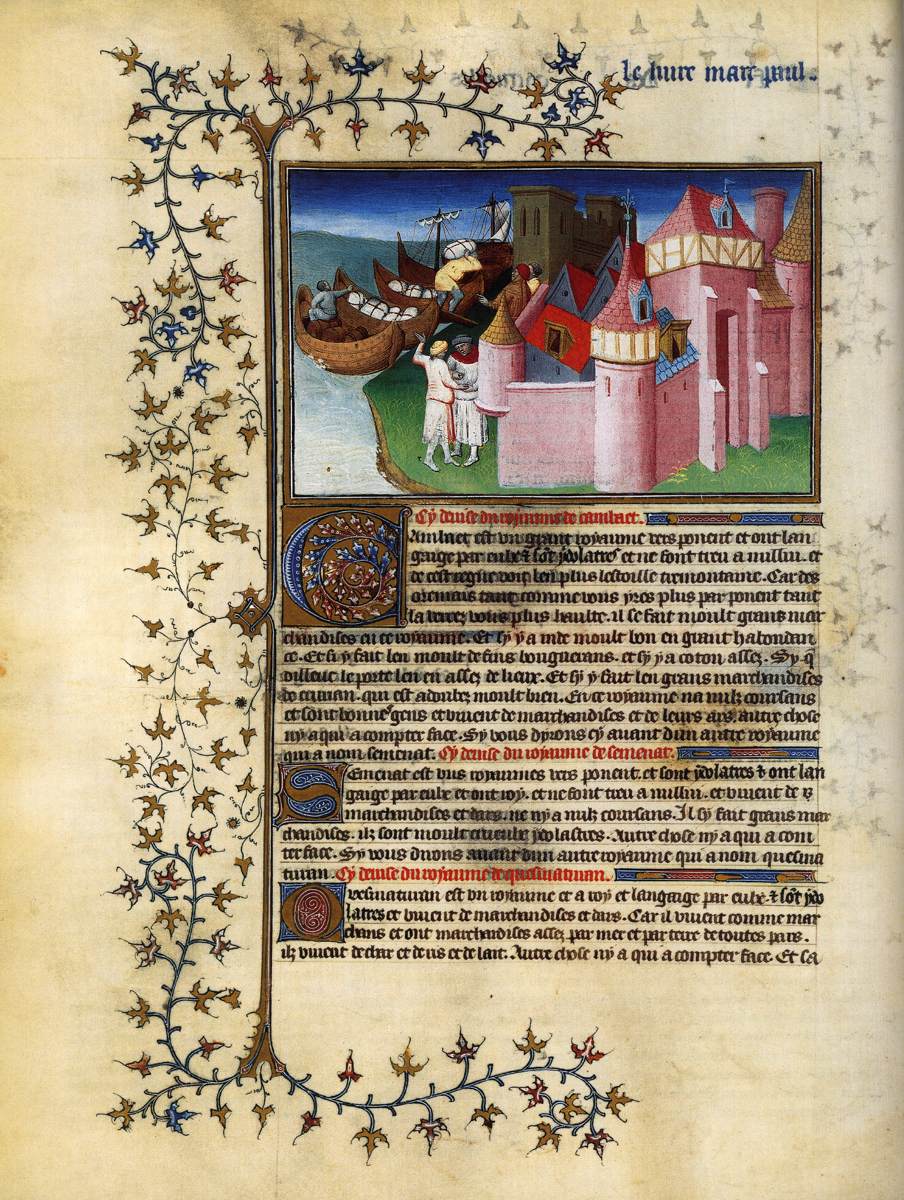 le liure marc paul.
Cy deuise du royaume de cambaet.
Cambaet est vn grant royaume vers ponent et ont lan
gaige par eulx & sont ydolatres et ne font treu a nulluy. et
de cest regne voit len plus lestoille tremontaine. Car des
oremais tant comme vous yrez plus par ponent tant
la verrez vous plus haulte. il se fait moult grans mer
chandises en ce royaume. Et sy y a inde moult bon en grant habondan
ce. Et si y fait len moult de fins bouguerans. et sy y a coton assez. Sy q̄
dilleuc le porte len en assez de lieux. Et sy y fait len grans marchandises
de cuirain. qui est adoubez moult bien. En ce royaume na nulz coursans
et sont bonnes gens et viuent de marchandises et de leurs ars. autre chose
ny a qui a compter face. Sy vous dyrons cy auant dun autre royaume
qui a nom semenat. Cy deuise du royaume de semenat.
Semenat est vns royaumes vers ponent. et sont ydolatres & ont lan
gaige par eulx et ont roy. et ne font treu a nulluy. et viuent de
marchandises et dars. ne ny a nulz coursans. Il sy fait grans mar
chandises. ilz sont moult ydolastres. Autre chose ny a qui a com
ter face. Sy vous dirons auant dun autre royaume qui a nom quesma
turan. Cy deuise du royaume de quesmaturan.
Quesmaturan est vn royaume et a roy et langaige par eulx. & sont ydo
latres et viuent de marchandises et dars. Car il viuent comme mar
chans et ont marchandises assez par mer et par terre de toutes pars.
ilz viuent de char et de ris et de lait. Autre chose ny a qui a compter face. Et sa